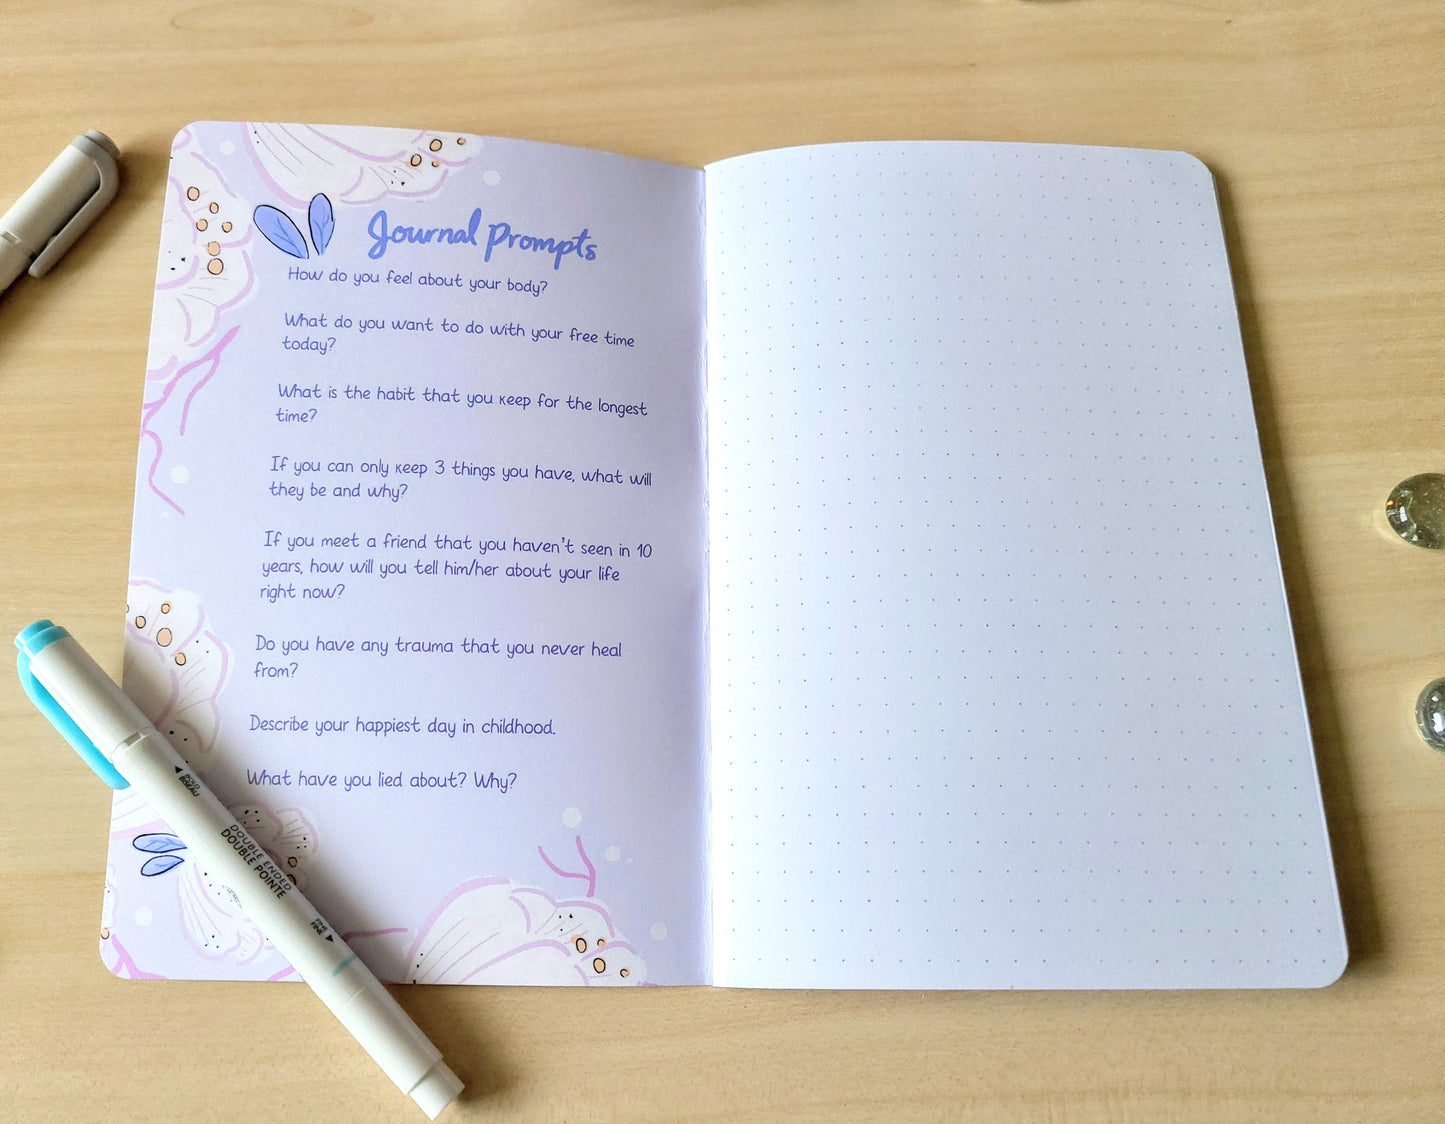 Journal Prompts
How do you feel about your body?
What do you want to do with your free time
today?
What is the habit that you keep for the longest
time?
If you can only keep 3 things you have, what will
they be and why?
If you meet a friend that you haven't seen in 10
years, how will you tell him/her about your life
right now?
Do you have any trauma that you never heal
from?
Describe your happiest day in childhood.
What have you lied about? Why?
BOLD
BISEAU
DOUBLE ENDED
DOUBLE POINTE
FINE
FINE